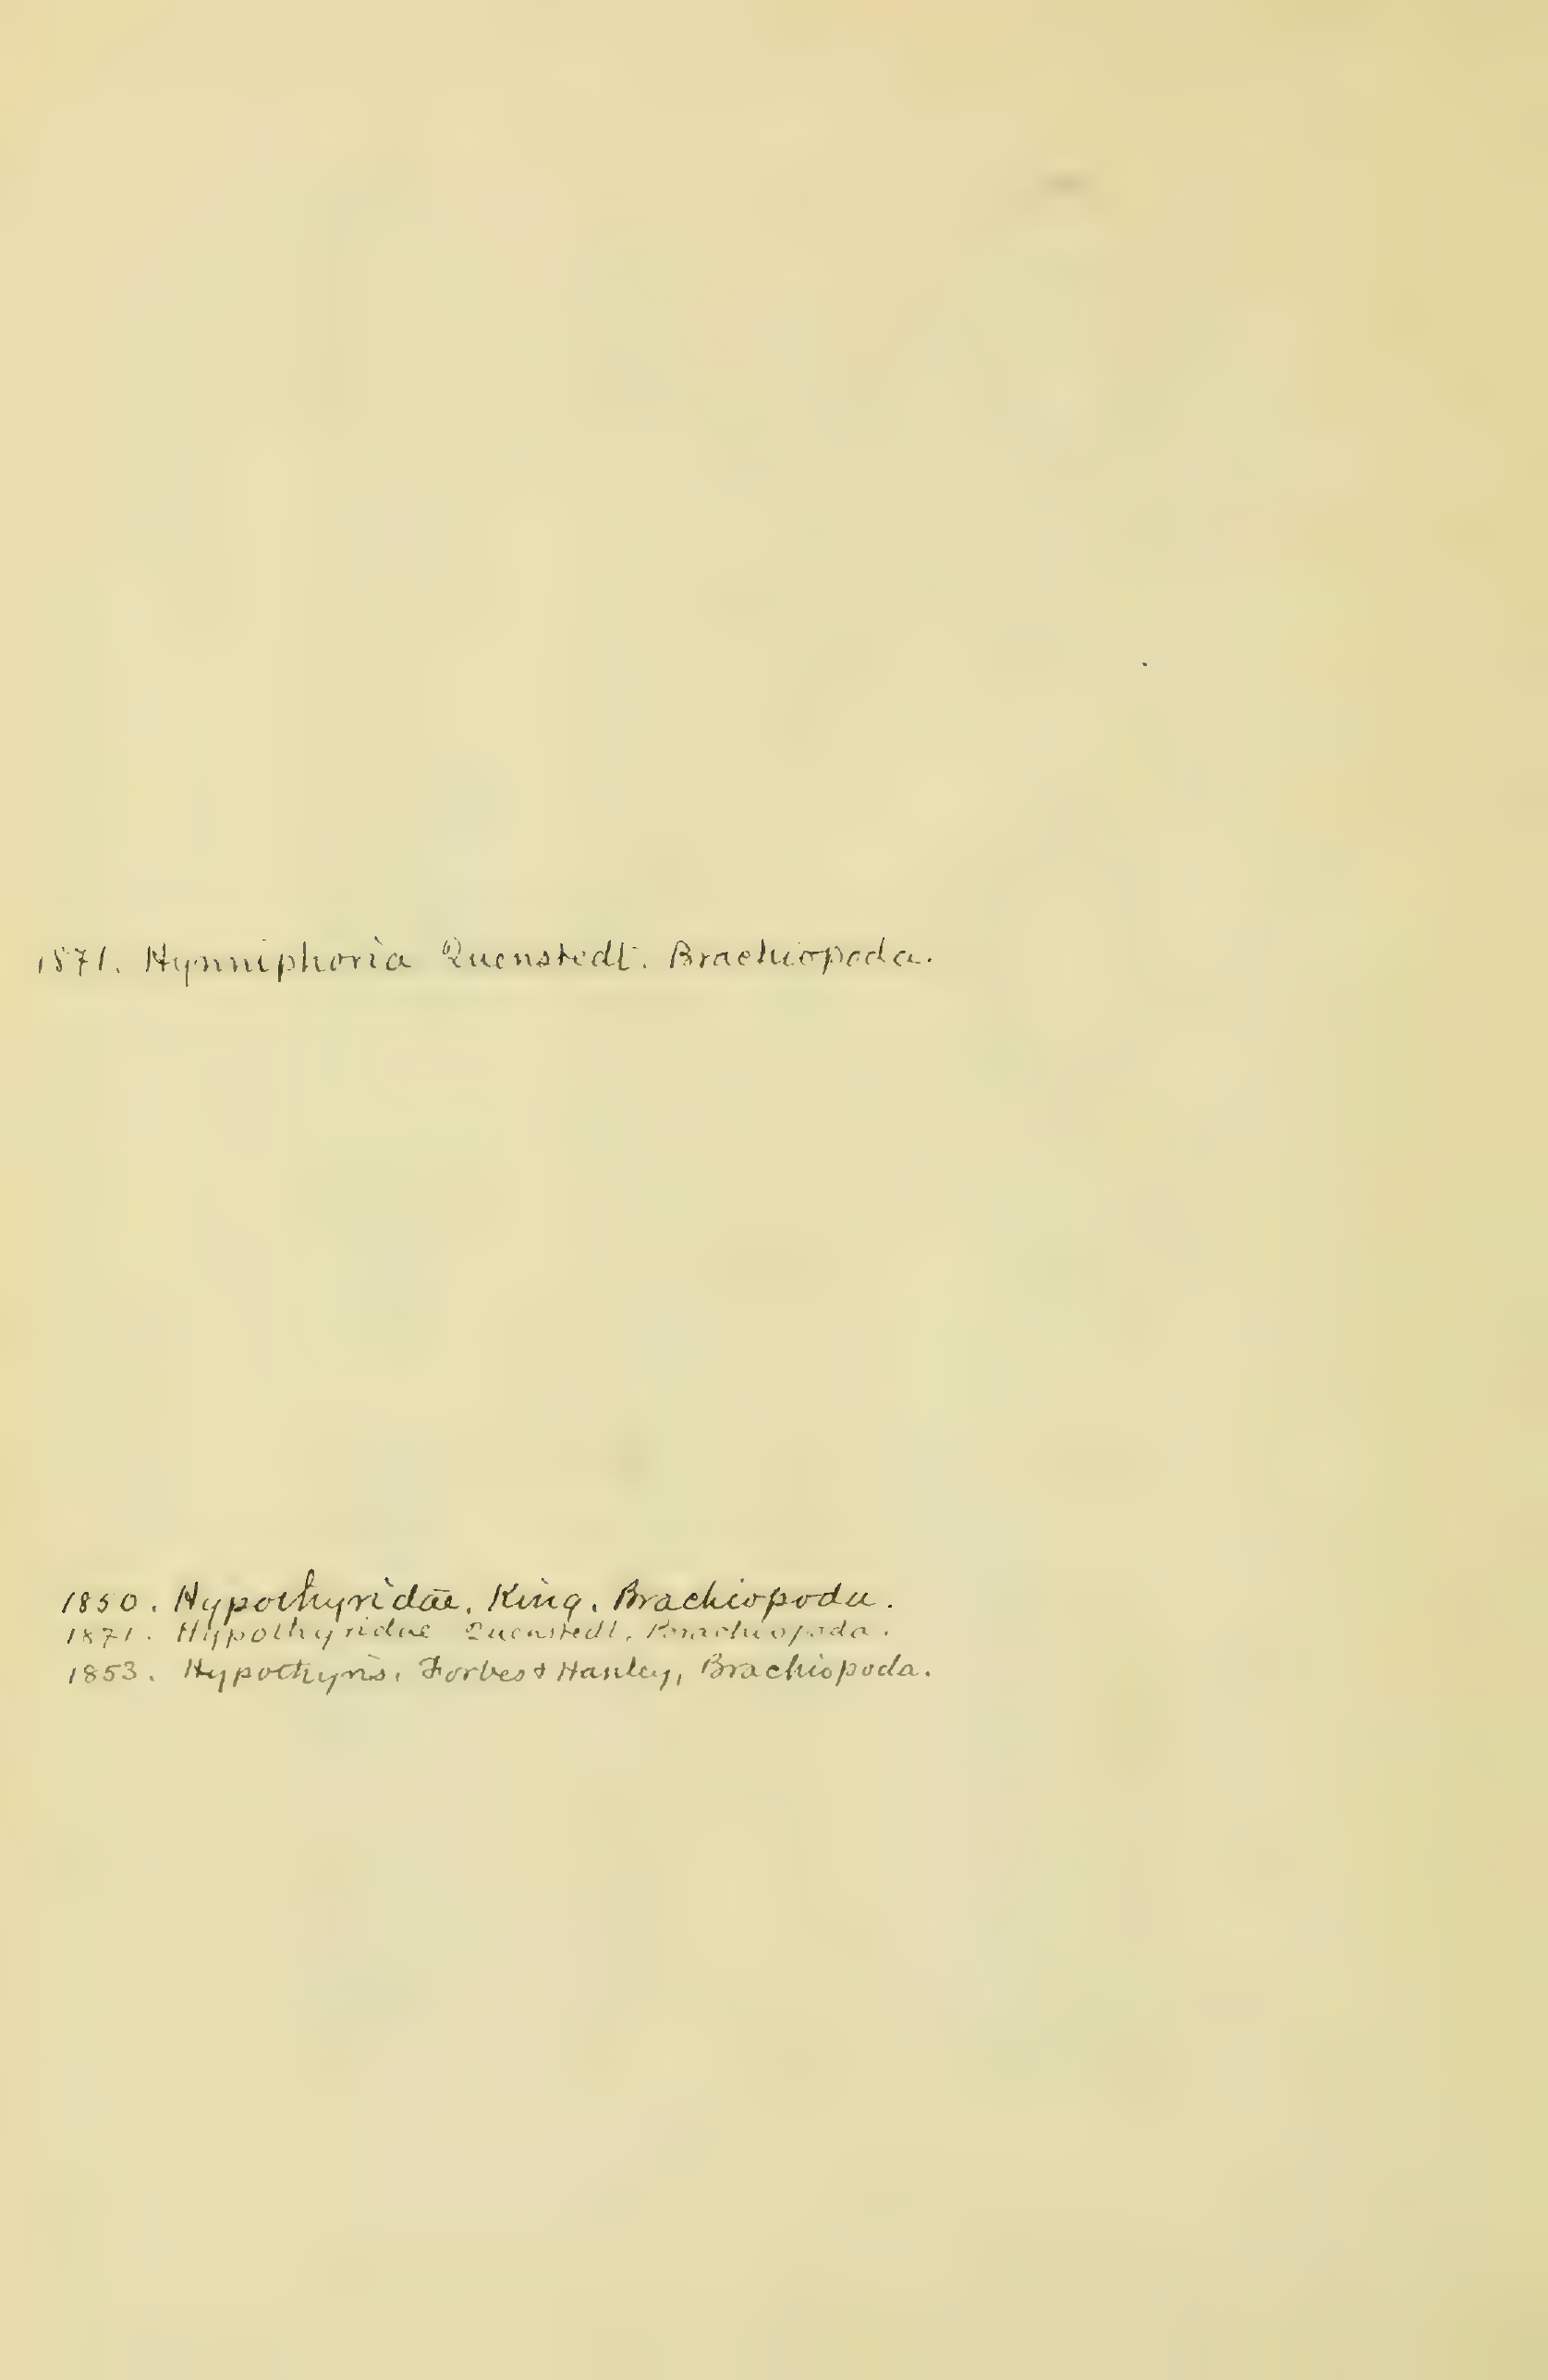 1871. Hynniphoria Quenstedt. Brachiopoda.
1850. Hypothyridae. King. Brachiopoda.
1871. Hypothyridae Quenstedt. Brachiopoda.
1853. Hypothyris. Forbes & Hanley, Brachiopoda.